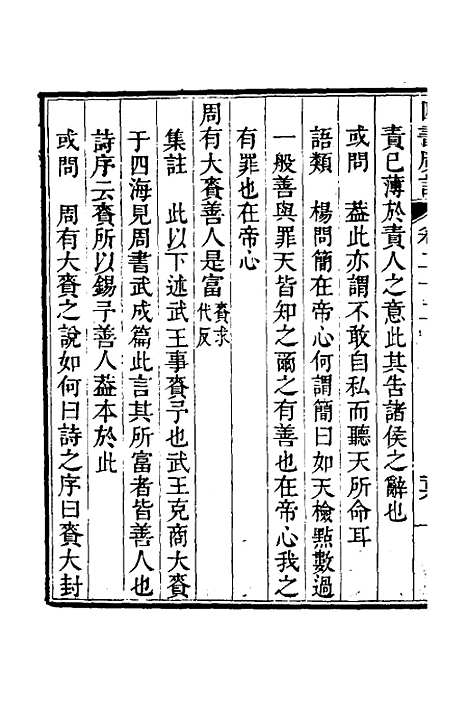 責已薄於責人之意此其告諸侯之辭也
或問　葢此亦謂不敢自私而聽天所命耳
語類　楊問簡在帝心何謂簡曰如天檢點數過
一般善與罪天皆知之爾之有善也在帝心我之
有罪也在帝心
周有大賚善人是富賚求代反
集註　此以下述武王事賚予也武王克商大賚
于四海見周書武成篇此言其所富者皆善人也
詩序云賚所以錫予善人葢本於此
或問　周有大賚之說如何曰詩之序曰賚大封